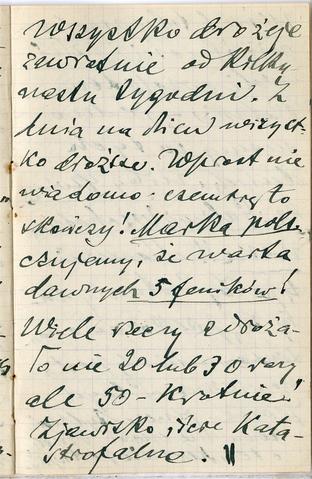 Wszystko drożeje
zawrotnie od kilku-
nastu tygodni. Z
dnia na dzień wszyst-
ko droższe. Wprost nie
wiadomo czem się to
skończy! Marka pols-
czujemy, że warta
dawnych 5 feników!
Wiele rzeczy zdroża-
ło nie 20 lub 30 razy,
ale 50-krotnie!
Zjawisko iście kata-
strofalne.